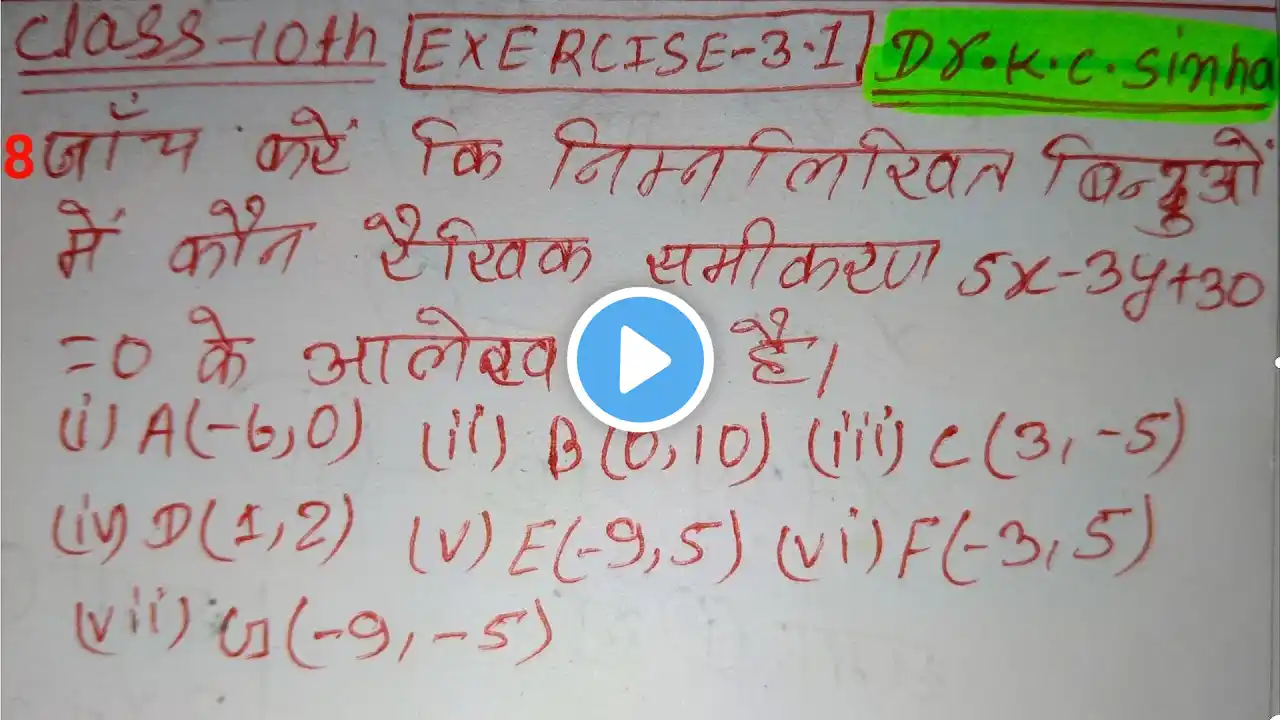 Class-10th EXERCISE-3.1 Dr.K.C.Sinha
8 जाँच करें कि निम्नलिखित बिन्दुओं
में कौन रैखिक समीकरण 5x-3y+30
=0 के आलेख है।
(i) A(-6,0) (ii) B(0,10) (iii) C(3,-5)
(iv) D(1,2) (v) E(-9,5) (vi) F(-3,5)
(vii) G(-9,-5)